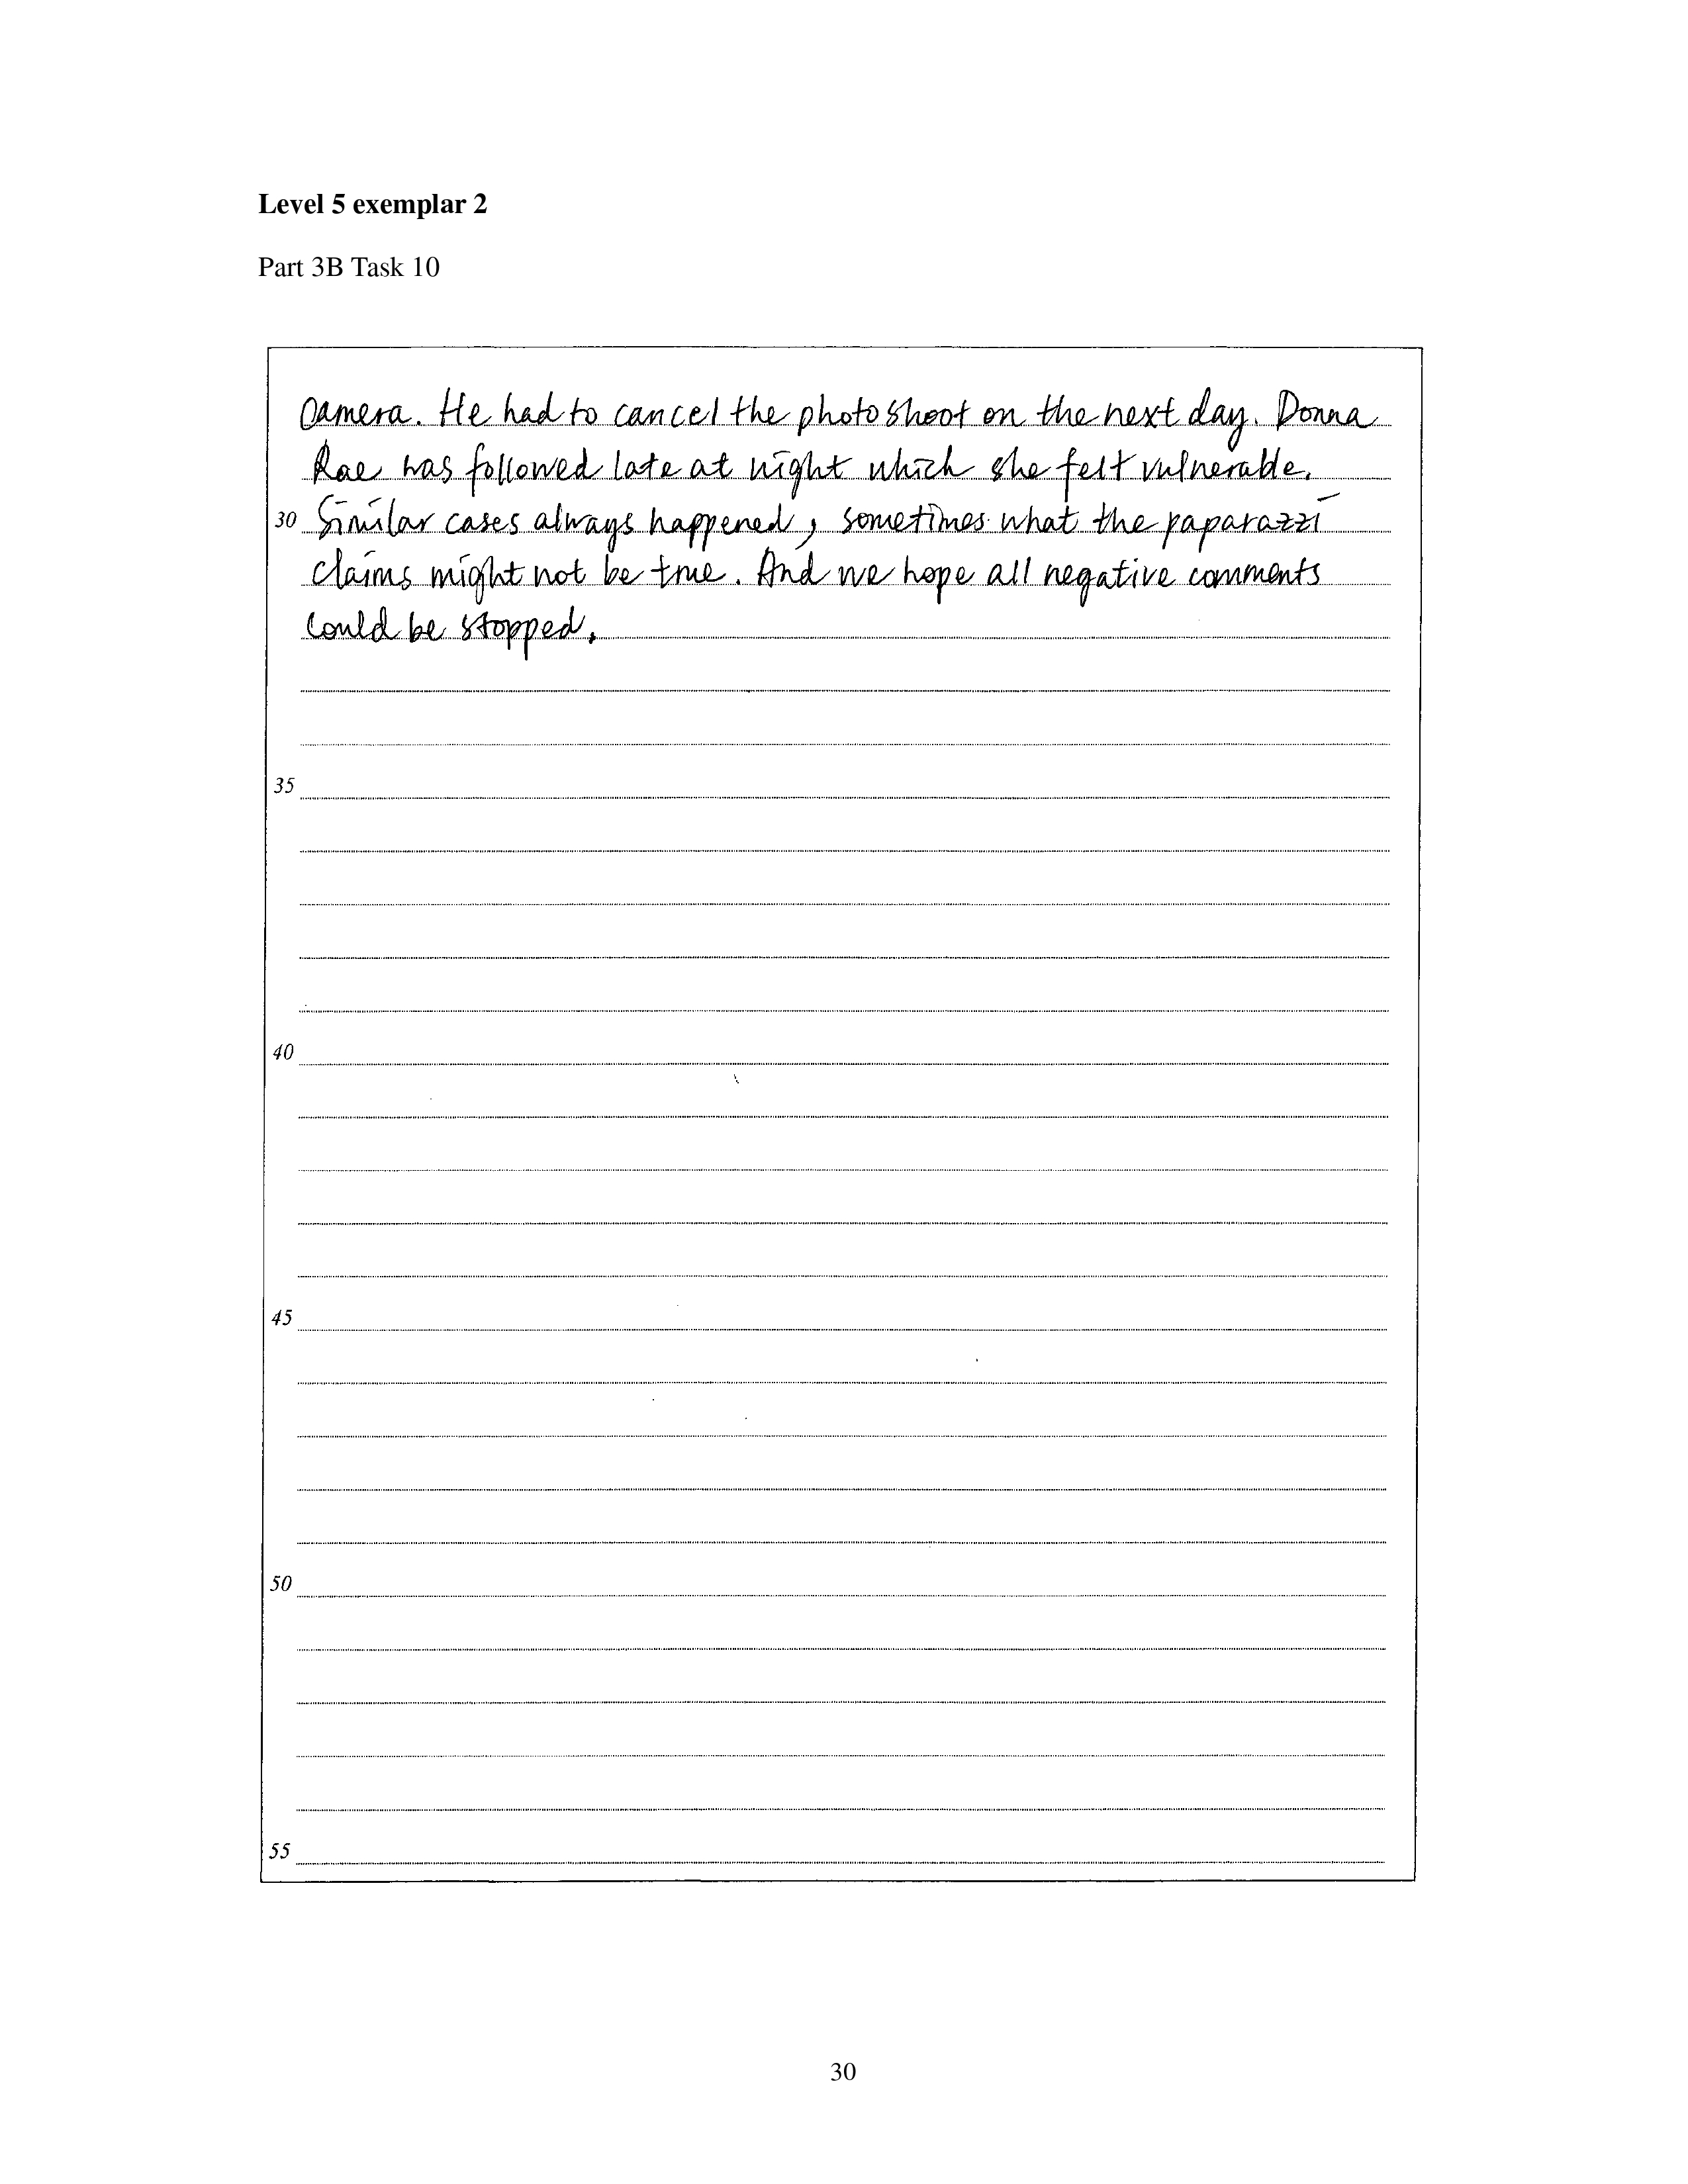 Level 5 exemplar 2
Part 3B Task 10
camera. He had to cancel the photoshoot on the next day. Donna
Rae was followed late at night which she felt vulnerable.
30 Similar cases always happened, sometimes what the paparazzi
claims might not be true. And we hope all negative comments
could be stopped.
35
40
45
50
55
30